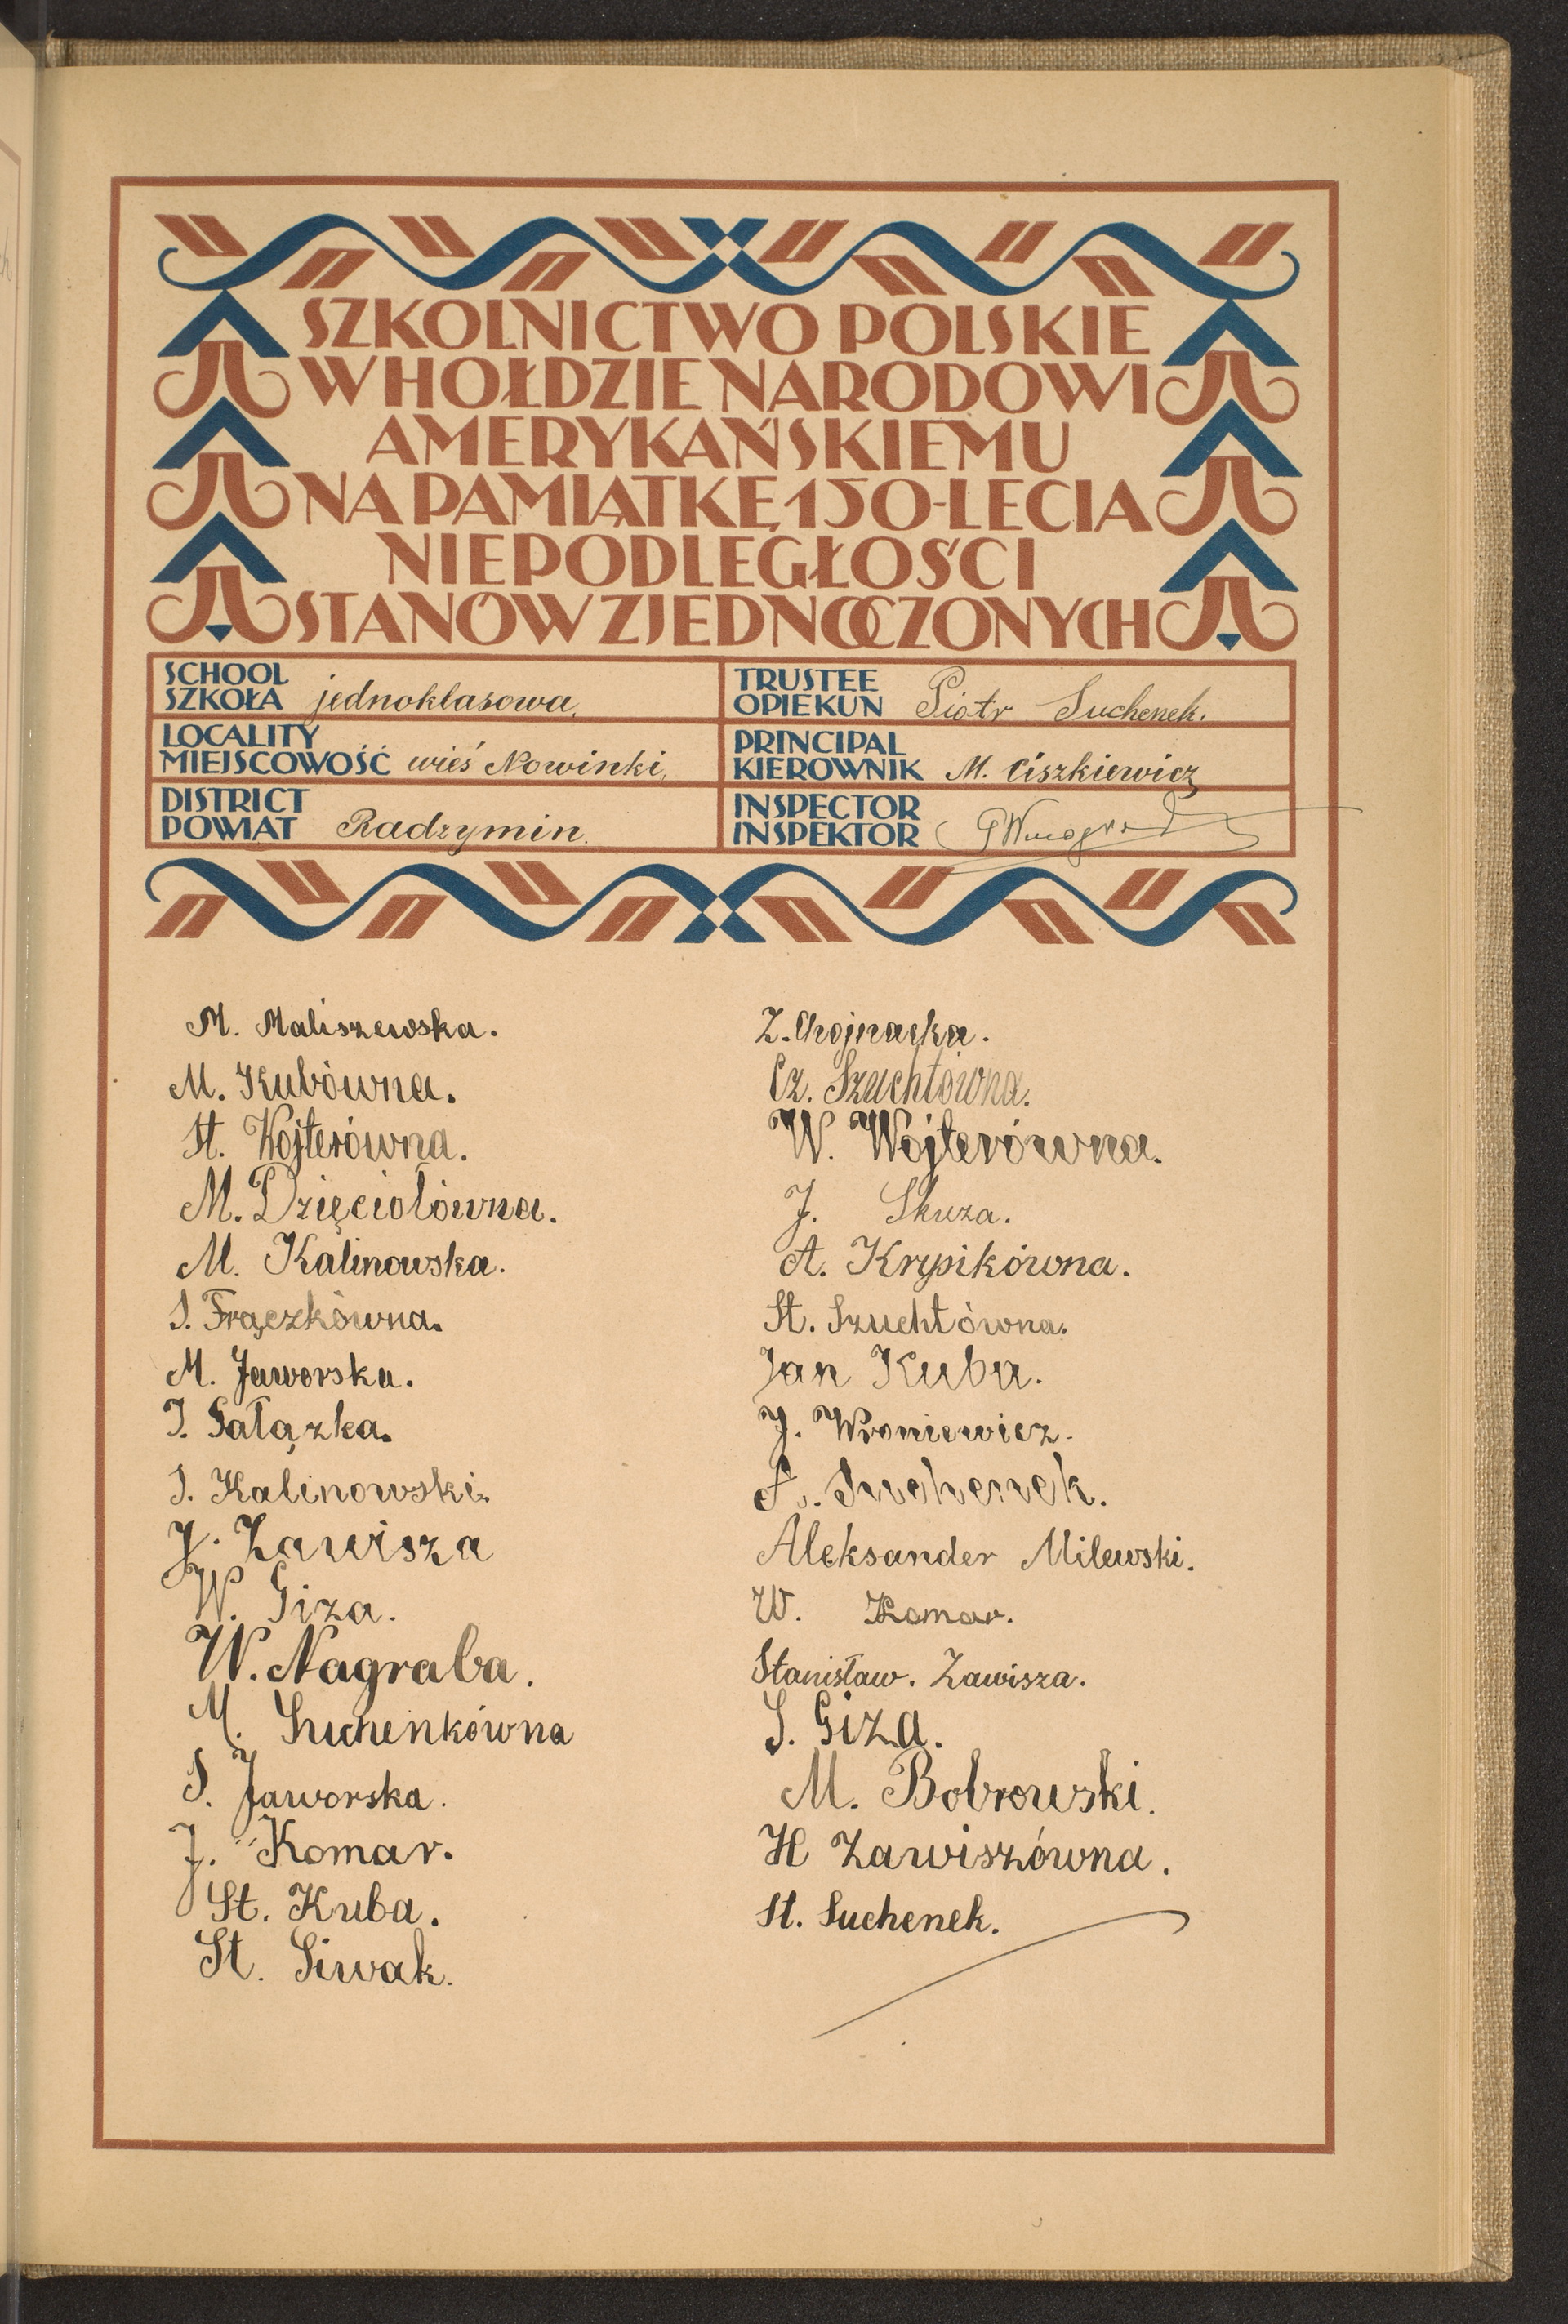 SZKOLNICTWO POLSKIE
W HOŁDZIE NARODOWI
AMERYKAŃSKIEMU
NA PAMIĄTKĘ 150-LECIA
NIEPODLEGŁOŚCI
STANÓW ZJEDNOCZONYCH
SCHOOL
SZKOŁA jednoklasowa.
LOCALITY
MIEJSCOWOŚĆ wieś Nowinki,
DISTRICT
POWIAT Radzymin.
TRUSTEE
OPIEKUN Piotr Suchenek.
PRINCIPAL
KIEROWNIK M. Ciszkiewicz
INSPECTOR
INSPEKTOR
M. Maliszewska.
M. Kubówna.
St. Wojterówna.
M. Dzięciołówna.
M. Kalinowska.
S. Frączkówna.
M. Jaworska.
J. Sałązka.
S. Kalinowski.
J. Zawisza
W. Giza.
W. Nagraba.
M. Suchenkówna
S. Jaworska.
J. Komar.
St. Kuba.
St. Siwak.
Z. Chojnacka.
Cz. Szuchtówna.
W. Wójterówna.
J. Skuza.
A. Krypikówna.
St. Szuchtówna.
Jan Kuba.
J. Wroniewicz.
Suchenek.
Aleksander Milewski.
W. Komar.
Stanisław. Zawisza.
S. Giza.
M. Bobrowski.
H Zawiszówna.
St. Suchenek.